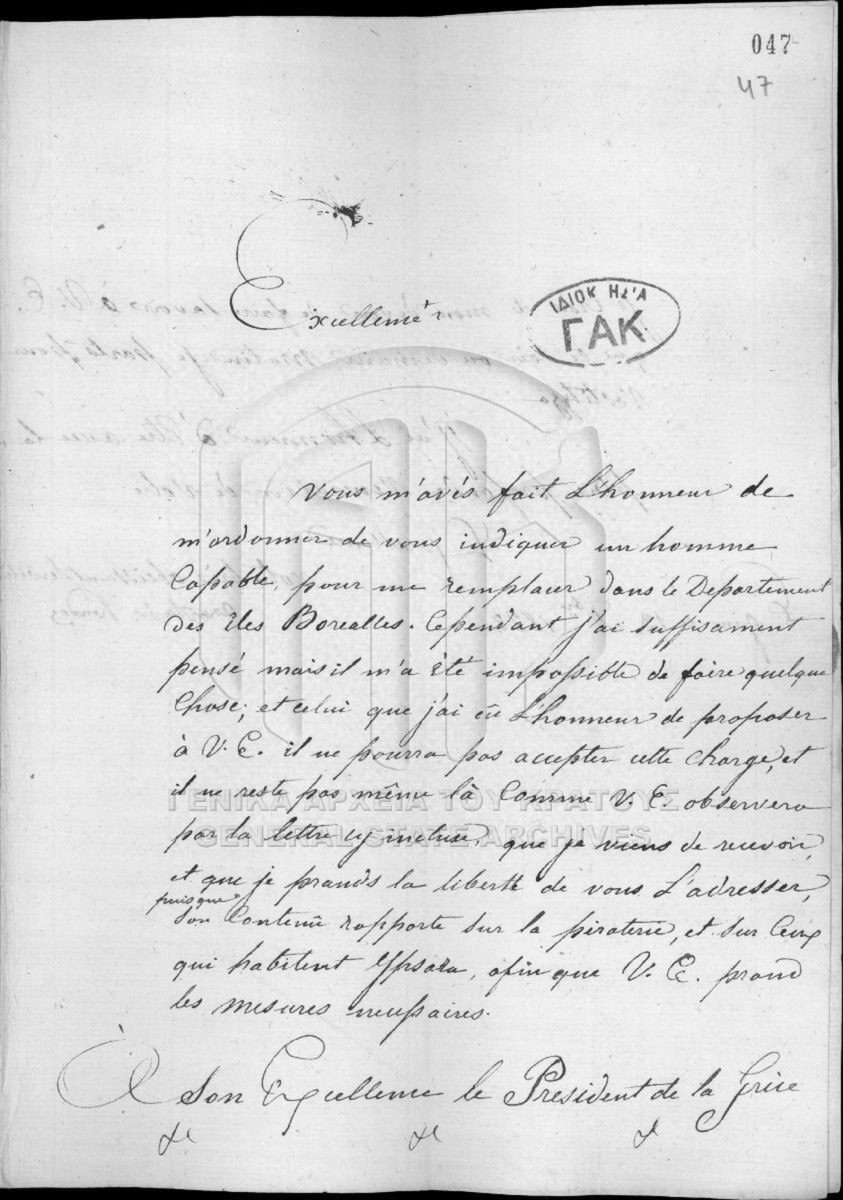 047
47
Excellence
ΙΔΙΟΚ ΗΣ'Α
ΓΑΚ
Vous m'avés fait L'honneur de
m'ordonner de vous indiquer un homme
Capable, pour me remplacer dans le Departement
des îles Borealles. Cependant j'ai suffisament
pensé mais il m'a été impossible de faire quelque
Chose; et celui que j'ai eû L'honneur de proposer
à V. E. il ne pourra pas accepter cette Charge, et
il ne reste pas même là Comme V. E. observera
par la lettre cy incluse, que je viens de recevoir,
et que je prands la liberté de vous L'adresser,
puisque
Son Contenû rapporte sur la piraterie, et sur Ceux
qui habitent Ypsara, afin que V. E. prand
les mesures necessaires.
ΓΕΝΙΚΑ ΑΡΧΕΙΑ ΤΟΥ ΚΡΑΤΟΥΣ
GENERAL STATE ARCHIVES
À Son Excellence le President de la Grèce
&c &c &